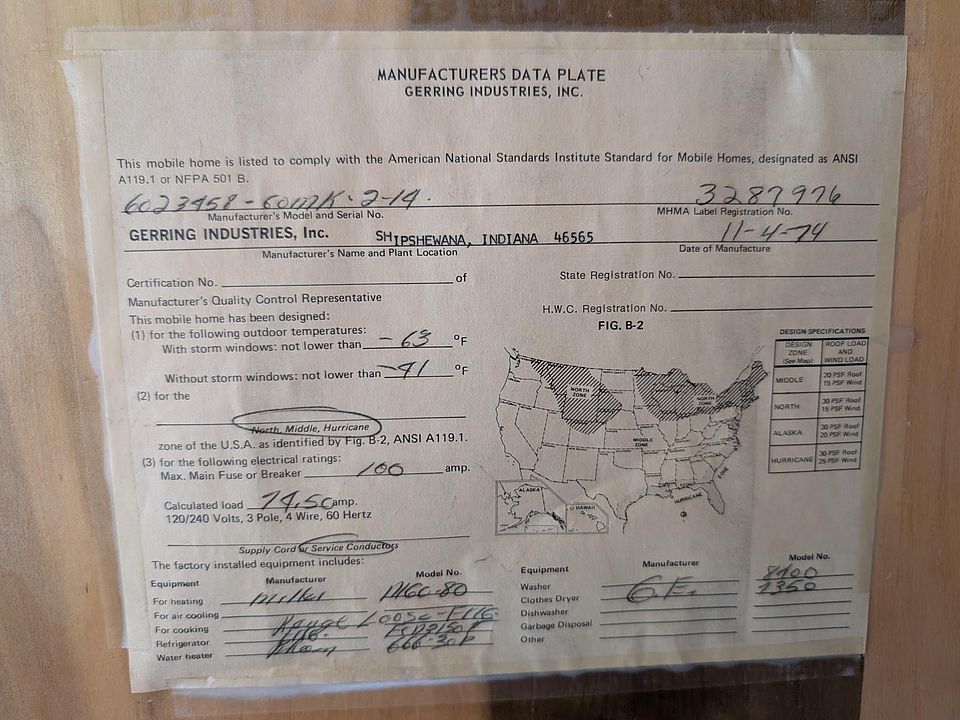 MANUFACTURERS DATA PLATE
GERRING INDUSTRIES, INC.
This mobile home is listed to comply with the American National Standards Institute Standard for Mobile Homes, designated as ANSI
A119.1 or NFPA 501 B.
3287976
Manufacturer's Model and Serial No.
MHMA Label Registration No.
GERRING INDUSTRIES, Inc. SHIPSHEWANA, INDIANA 46565
11-4-74
Manufacturer's Name and Plant Location
Date of Manufacture
Certification No. of
State Registration No.
Manufacturer's Quality Control Representative
H.W.C. Registration No.
This mobile home has been designed:
(1) for the following outdoor temperatures:
With storm windows: not lower than -63 °F
Without storm windows: not lower than -41 °F
(2) for the
North, Middle, Hurricane
zone of the U.S.A. as identified by Fig. B-2, ANSI A119.1.
(3) for the following electrical ratings:
Max. Main Fuse or Breaker 100 amp.
Calculated load 74.50 amp.
120/240 Volts, 3 Pole, 4 Wire, 60 Hertz
Supply Cord or Service Conductors
FIG. B-2
NORTH ZONE
NORTH ZONE
MIDDLE ZONE
HURRICANE
ZONE
ALASKA
HAWAII
DESIGN SPECIFICATIONS
DESIGN ZONE (See Map) ROOF LOAD AND WIND LOAD
MIDDLE 20 PSF Roof 15 PSF Wind
NORTH 30 PSF Roof 15 PSF Wind
ALASKA 30 PSF Roof 20 PSF Wind
HURRICANE 30 PSF Roof 25 PSF Wind
The factory installed equipment includes:
Equipment Manufacturer Model No.
For heating Miller
For air cooling
For cooking Range
Refrigerator
Water heater
Equipment Manufacturer Model No.
Washer 8400
Clothes Dryer G.E. 7350
Dishwasher
Garbage Disposal
Other